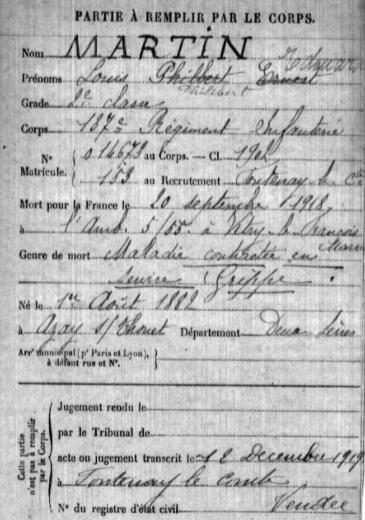 PARTIE À REMPLIR PAR LE CORPS.
Nom MARTIN
Prénoms Louis Philbert Ernest Edouard
Philibert
Grade 2e classe
Corps 137e Régiment Infanterie
N° Matricule. { 014673 au Corps. — Cl. 1902
153 au Recrutement Fontenay le Cte
Mort pour la France le 20 septembre 1918
à l'Amb. 5/55 à Vitry le François Marne
Genre de mort Maladie contractée en
service Grippe.
Né le 1er Août 1882
à Azay s/ Thouet Département Deux Sèvres
Arrt municipal (pr Paris et Lyon),
à défaut rue et N°.
Cette partie n'est pas à remplir par le Corps.
Jugement rendu le
par le Tribunal de
acte ou jugement transcrit le 12 Décembre 1919
à Fontenay le Comte
Vendée
N° du registre d'état civil